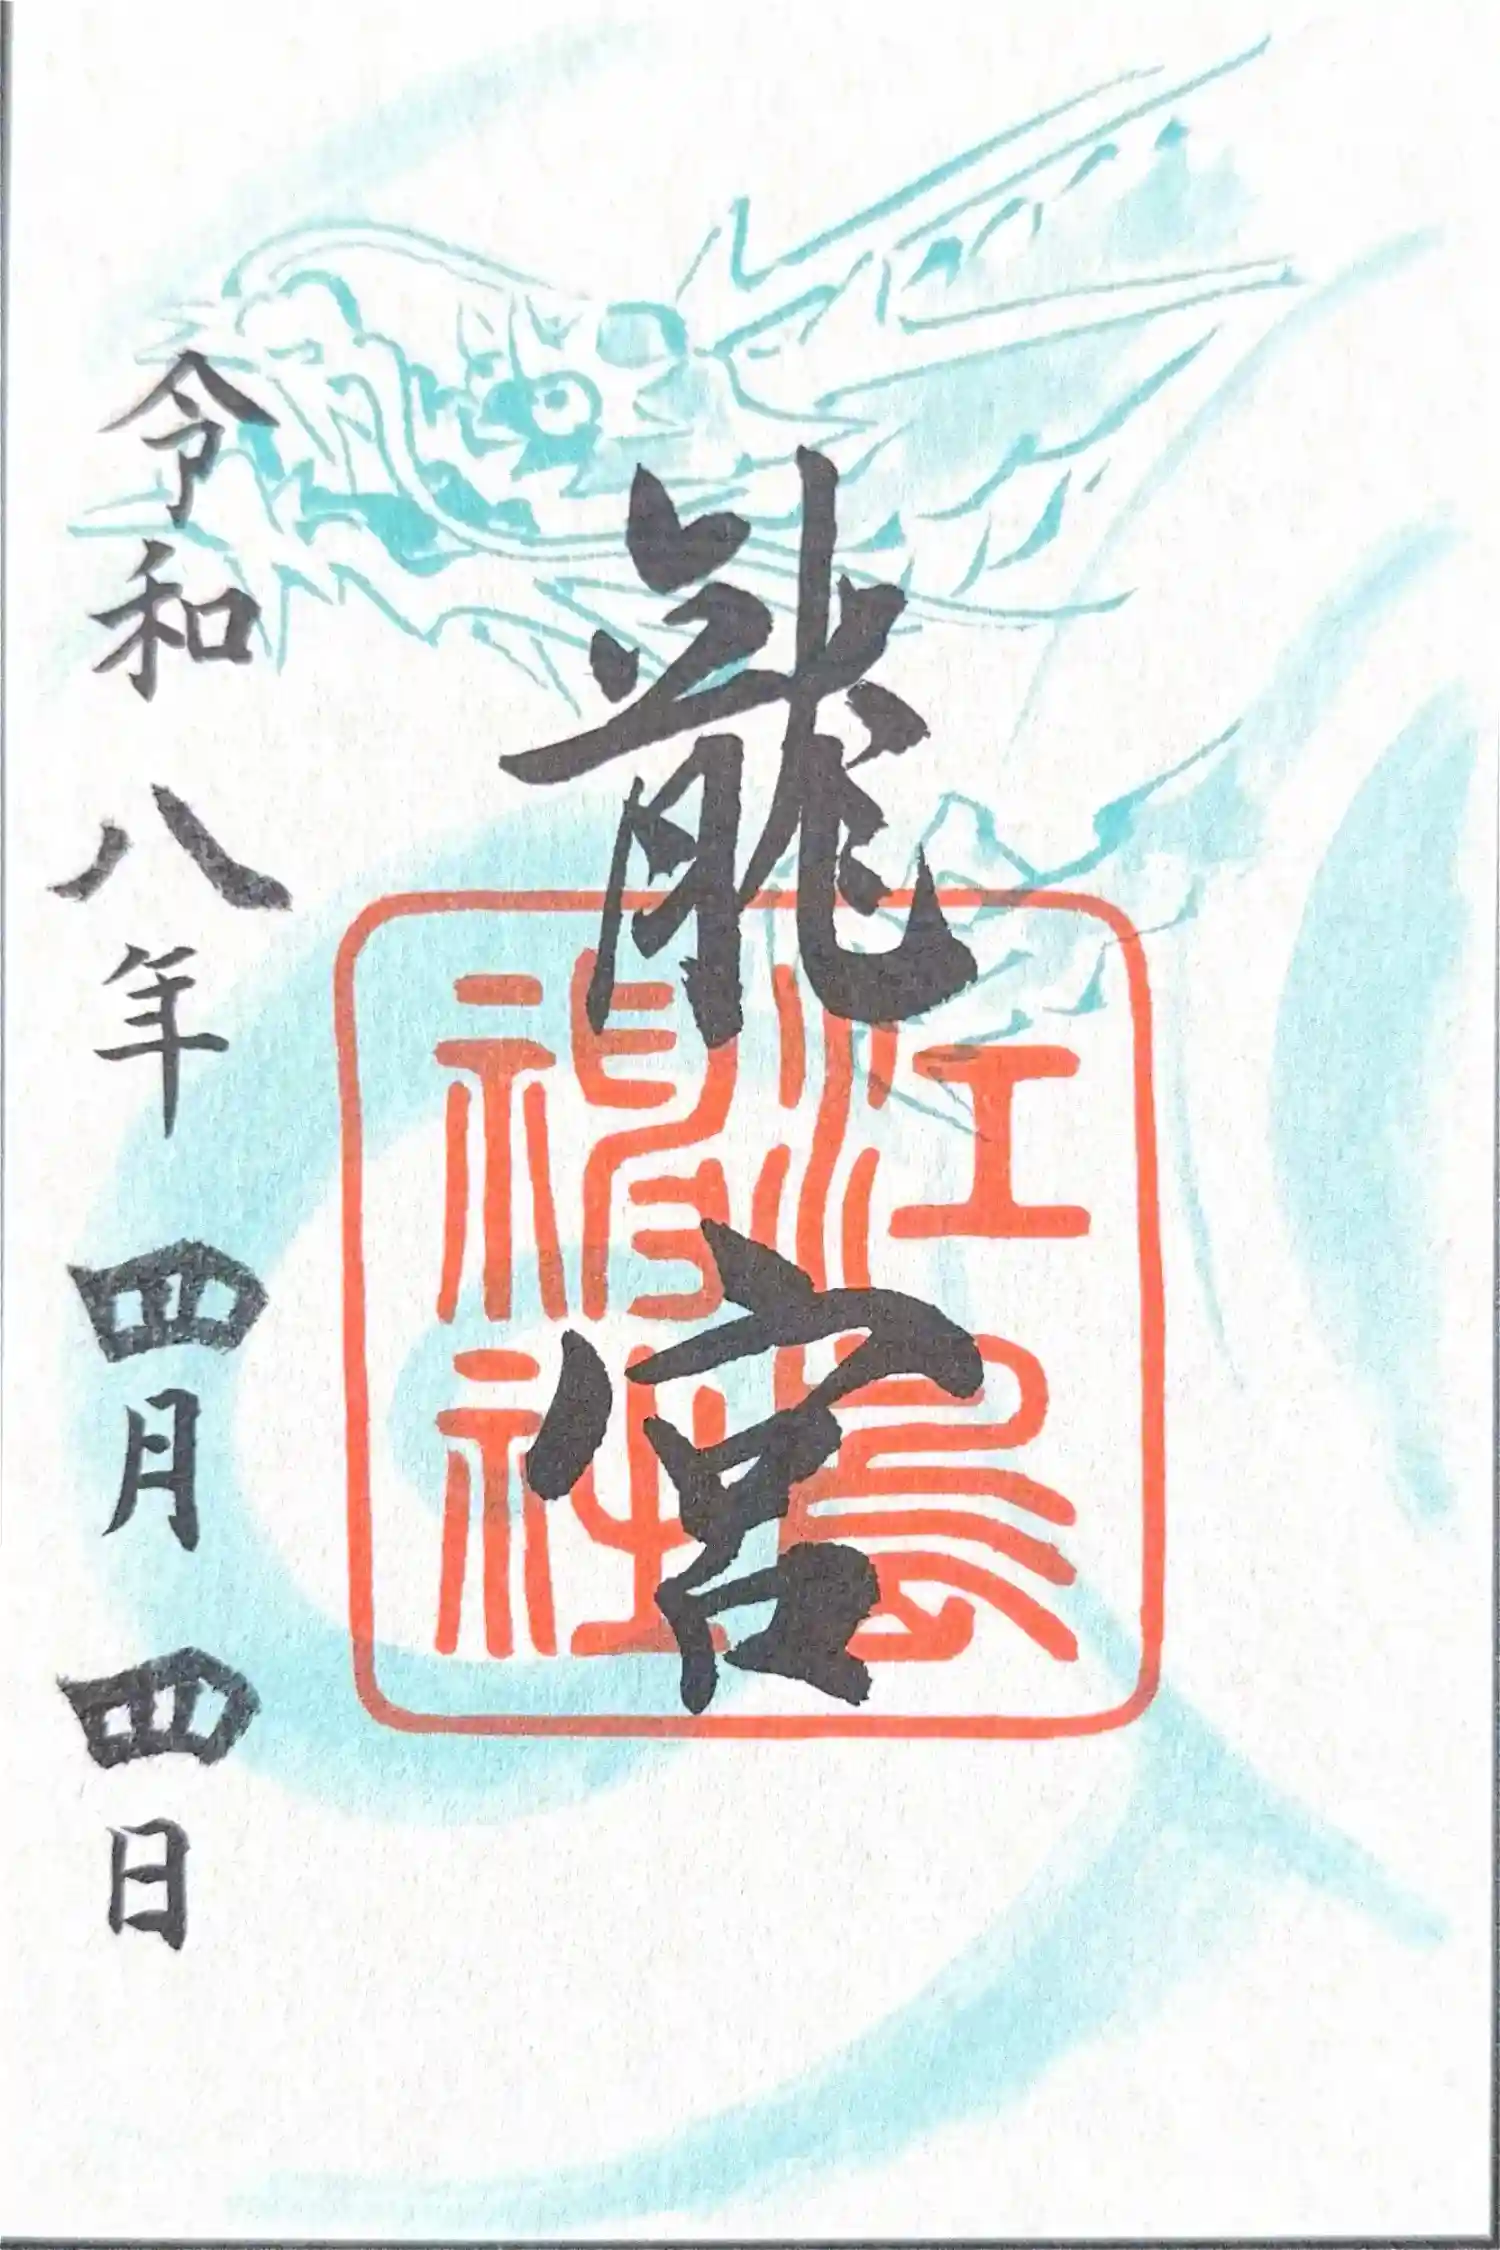 龍宮
江島神社
令和八年四月四日